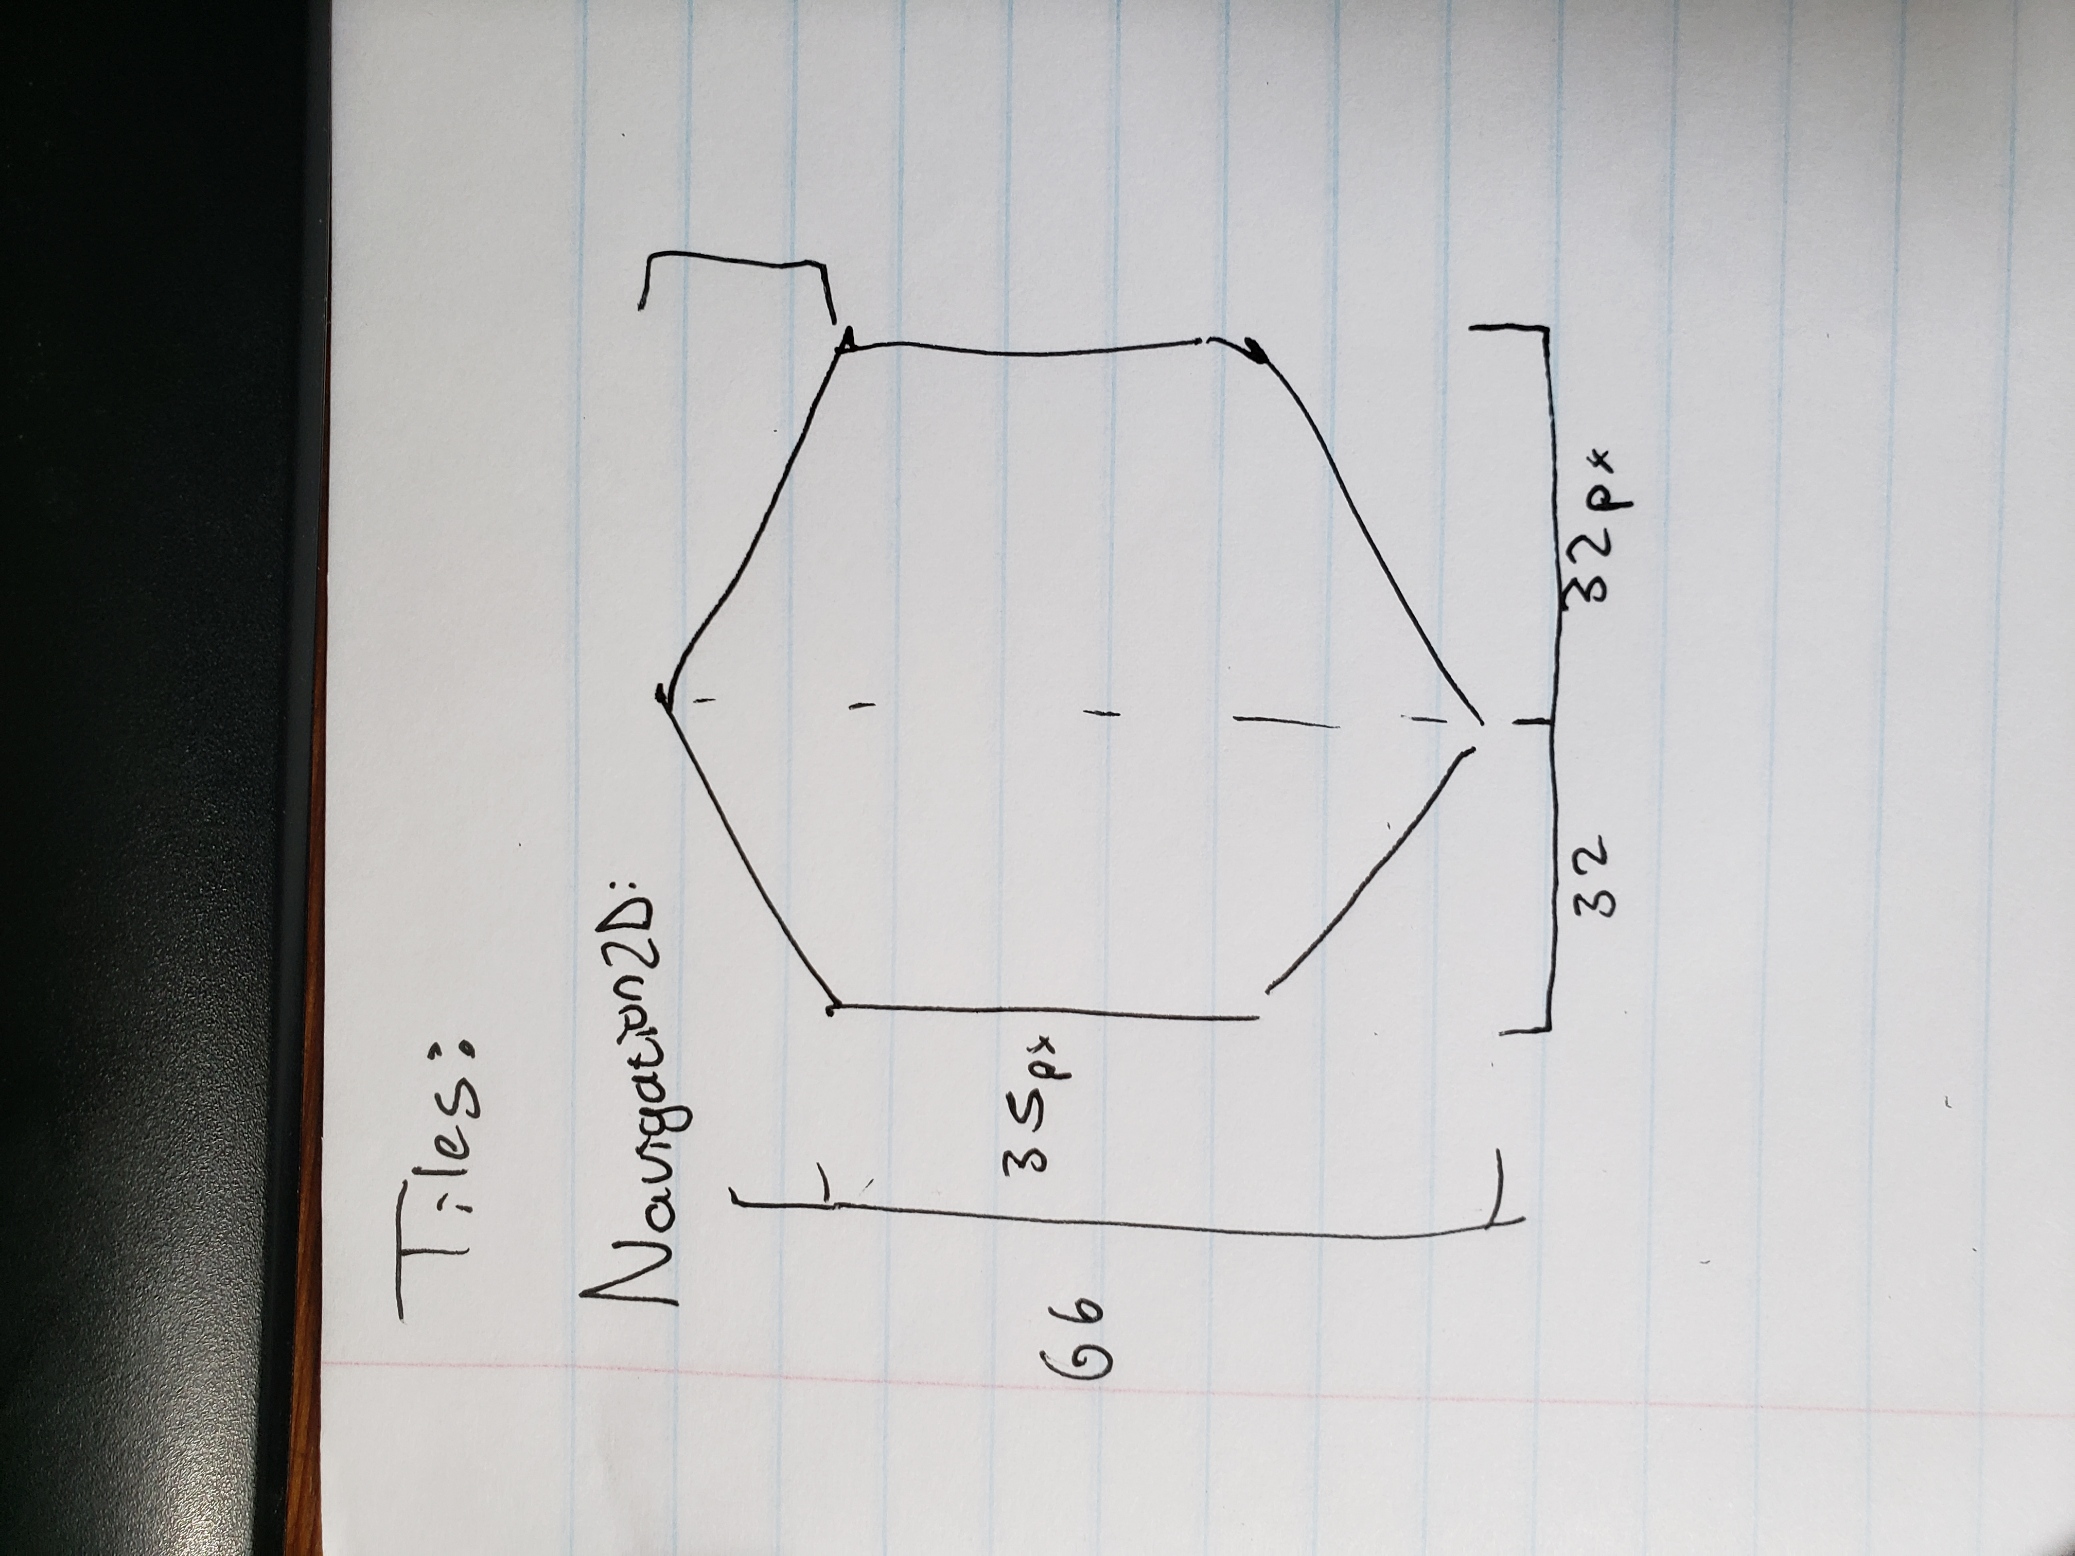 Tiles:
Navigation2D:
35px
66
32 32px